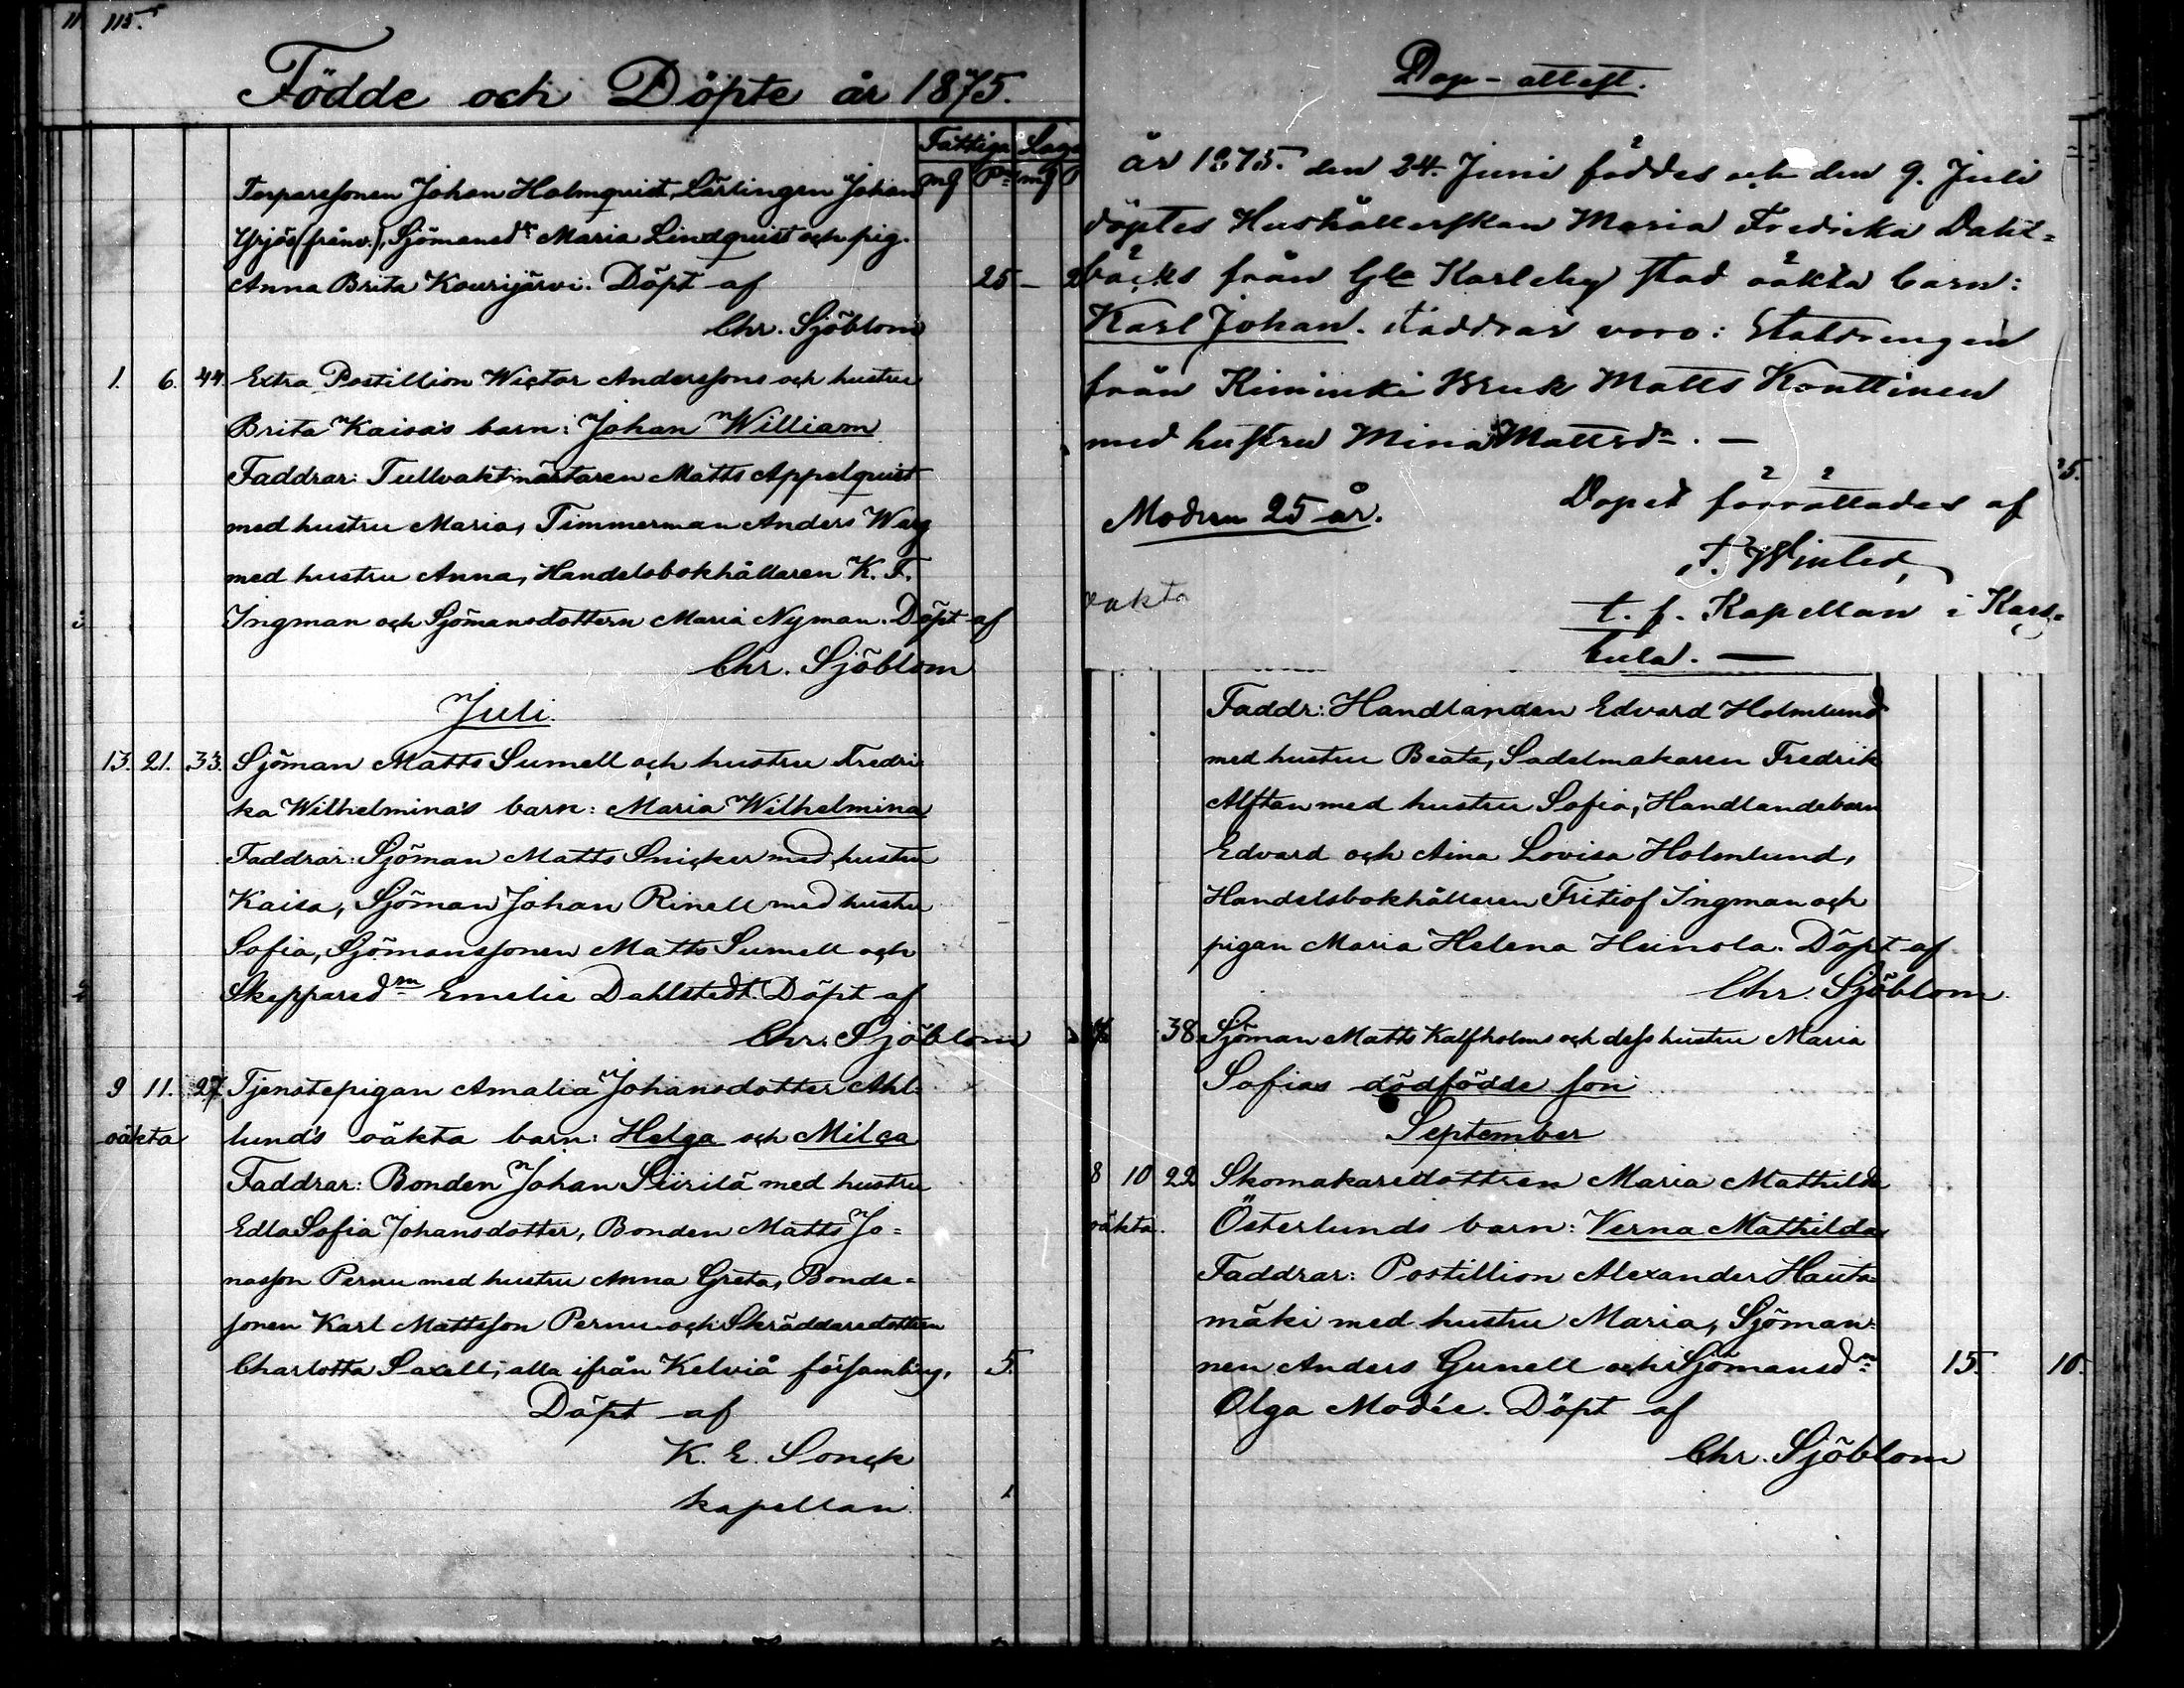 115.
Födde och Döpte år 1875.
Fattiga
Torparesonen Johan Holmquist, Lärlingen Johan
Yrjös (frånv.), Sjömansdr Maria Lindquist och pig.
Anna Brita Kourijärvi. Döpt af 25 –
Chr. Sjöblom
1. 6. 44. Extra Postillion Wictor Anderssons och hustru
Brita Kaisa's barn: Johan William
Faddrar: Tullvaktmästaren Matts Appelquist
med hustru Maria, Timmerman Anders Warg
med hustru Anna, Handelsbokhållaren K. F.
Ingman och Sjömansdottern Maria Nyman. Döpt af
Chr. Sjöblom
Juli.
13. 21. 33. Sjöman Matts Sumell och hustru Fredri
ka Wilhelmina's barn: Maria Wilhelmina
Faddrar: Sjöman Matts Snicker med hustru
Kaisa, Sjöman Johan Rinell med hustru
Sofia, Sjömanssonen Matts Sumell och
Skeppared:n Emelie Dahlstedt. Döpt af
Chr. Sjöblom
9 11. 27. Tjenstepigan Amalia Johansdotter Ahl-
oäkta lund's oäkta barn: Helga och Milca
Faddrar: Bonden Johan Siirilä med hustru
Edla Sofia Johansdotter, Bonden Matts Jo=
nasson Pernu med hustru Anna Greta, Bonde=
sonen Karl Mattsson Pernu och Skräddaredottern
Charlotta Saxell, alla ifrån Kelviå församling. 5.
Döpt af
K. E. Sonck
kapellan.
Dop-attest.
År 1875. den 24. Juni föddes och den 9. Juli
döptes Hushållerskan Maria Fredrika Dahl=
bäcks från Gla Karleby stad oäkta barn:
Karl Johan. Faddrar voro: Statdrengen
från Kiminki Bruk Matts Konttinen
med hustru Mina Mattsdr. –
Modern 25 år.
Dopet förrättades af
t. f. Kapellan i Kars=
tula. —
oäkta
Faddr: Handlanden Edvard Holmlund
med hustru Beata, Sadelmakaren Fredrik
Alftan med hustru Sofia, Handlandebarn
Edvard och Aina Lovisa Holmlund,
Handelsbokhållaren Fritiof Ingman och
pigan Maria Helena Heinola. Döpt af
Chr. Sjöblom.
38 Sjöman Matts Kalfholms och dess hustru Maria
Sofias dödfödde son
September
8 10 22 Skomakaredottren Maria Mathilda
oäkta. Österlunds barn: Verna Mathilda
Faddrar: Postillion Alexander Hauta=
mäki med hustru Maria, Sjöman=
nen Anders Gunell och Sjömansd:n 15. 10.
Olga Modée. Döpt af
Chr. Sjöblom